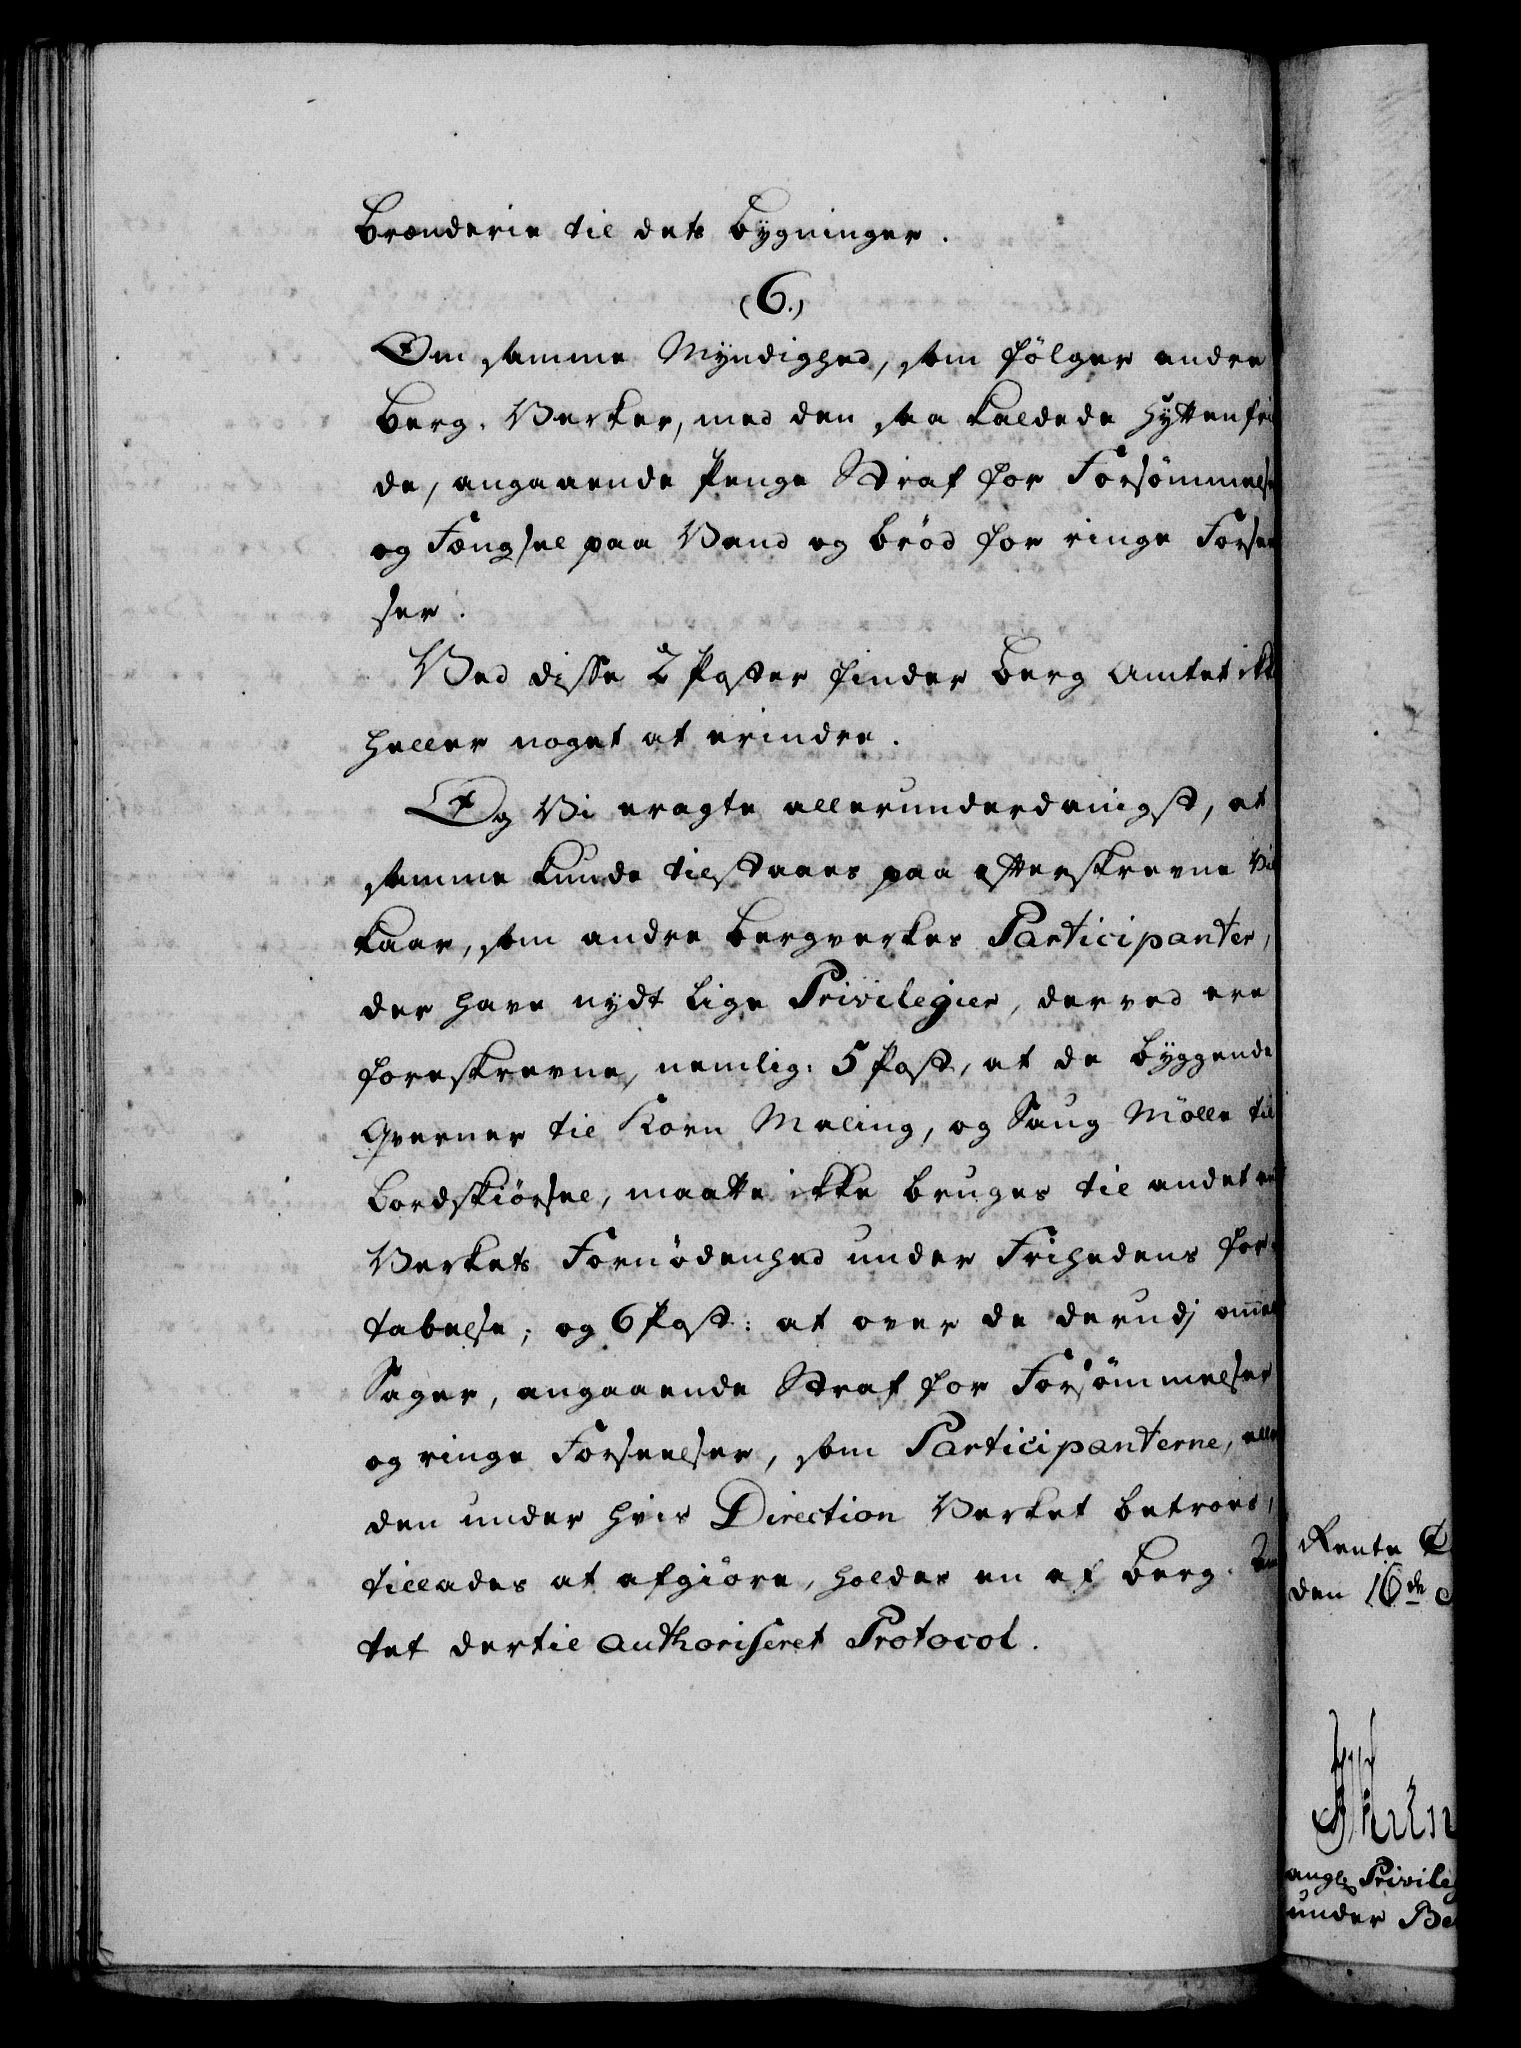 Brenderie til dets Bygninger.
(6.)
Om samme Myndighed, som følger andre
Berg-Verker, med den saa kaldede Hyttenfri
de, angaaende Penge Straf for Forsømmelse
og Fængsel paa Vand og Brød for ringe Forseel
ser.
Ved disse 2 Poster finder Berg Amtet ikke
heller noget at erindre.
Og Vi eragte allerunderdanigst, at
samme kunde tilstaaes paa efterskrevne Vil
kaar, som andre Bergverkes Participanter,
der have nydt lige Privilegier, derved ere
foreskrevne, nemlig: 5 Post, at de byggende
Qverner til Korn Maling, og Saug Mølle til
Bordskiørsel, maatte ikke bruges til andet end
Verkets Fornødenhed under Frihedens For-
tabelse; og 6 Post: at over de derudj ommelte
Sager, angaaende Straf for Forsømmelser
og ringe Forseelser, som Participanterne, eller
den under hvis Direction Verket betroes,
tillades at afgiøre, holdes en af Berg-Am
tet dertil authoriseret Protocol.
Rente
den 16de
angl. Privileg
under Be